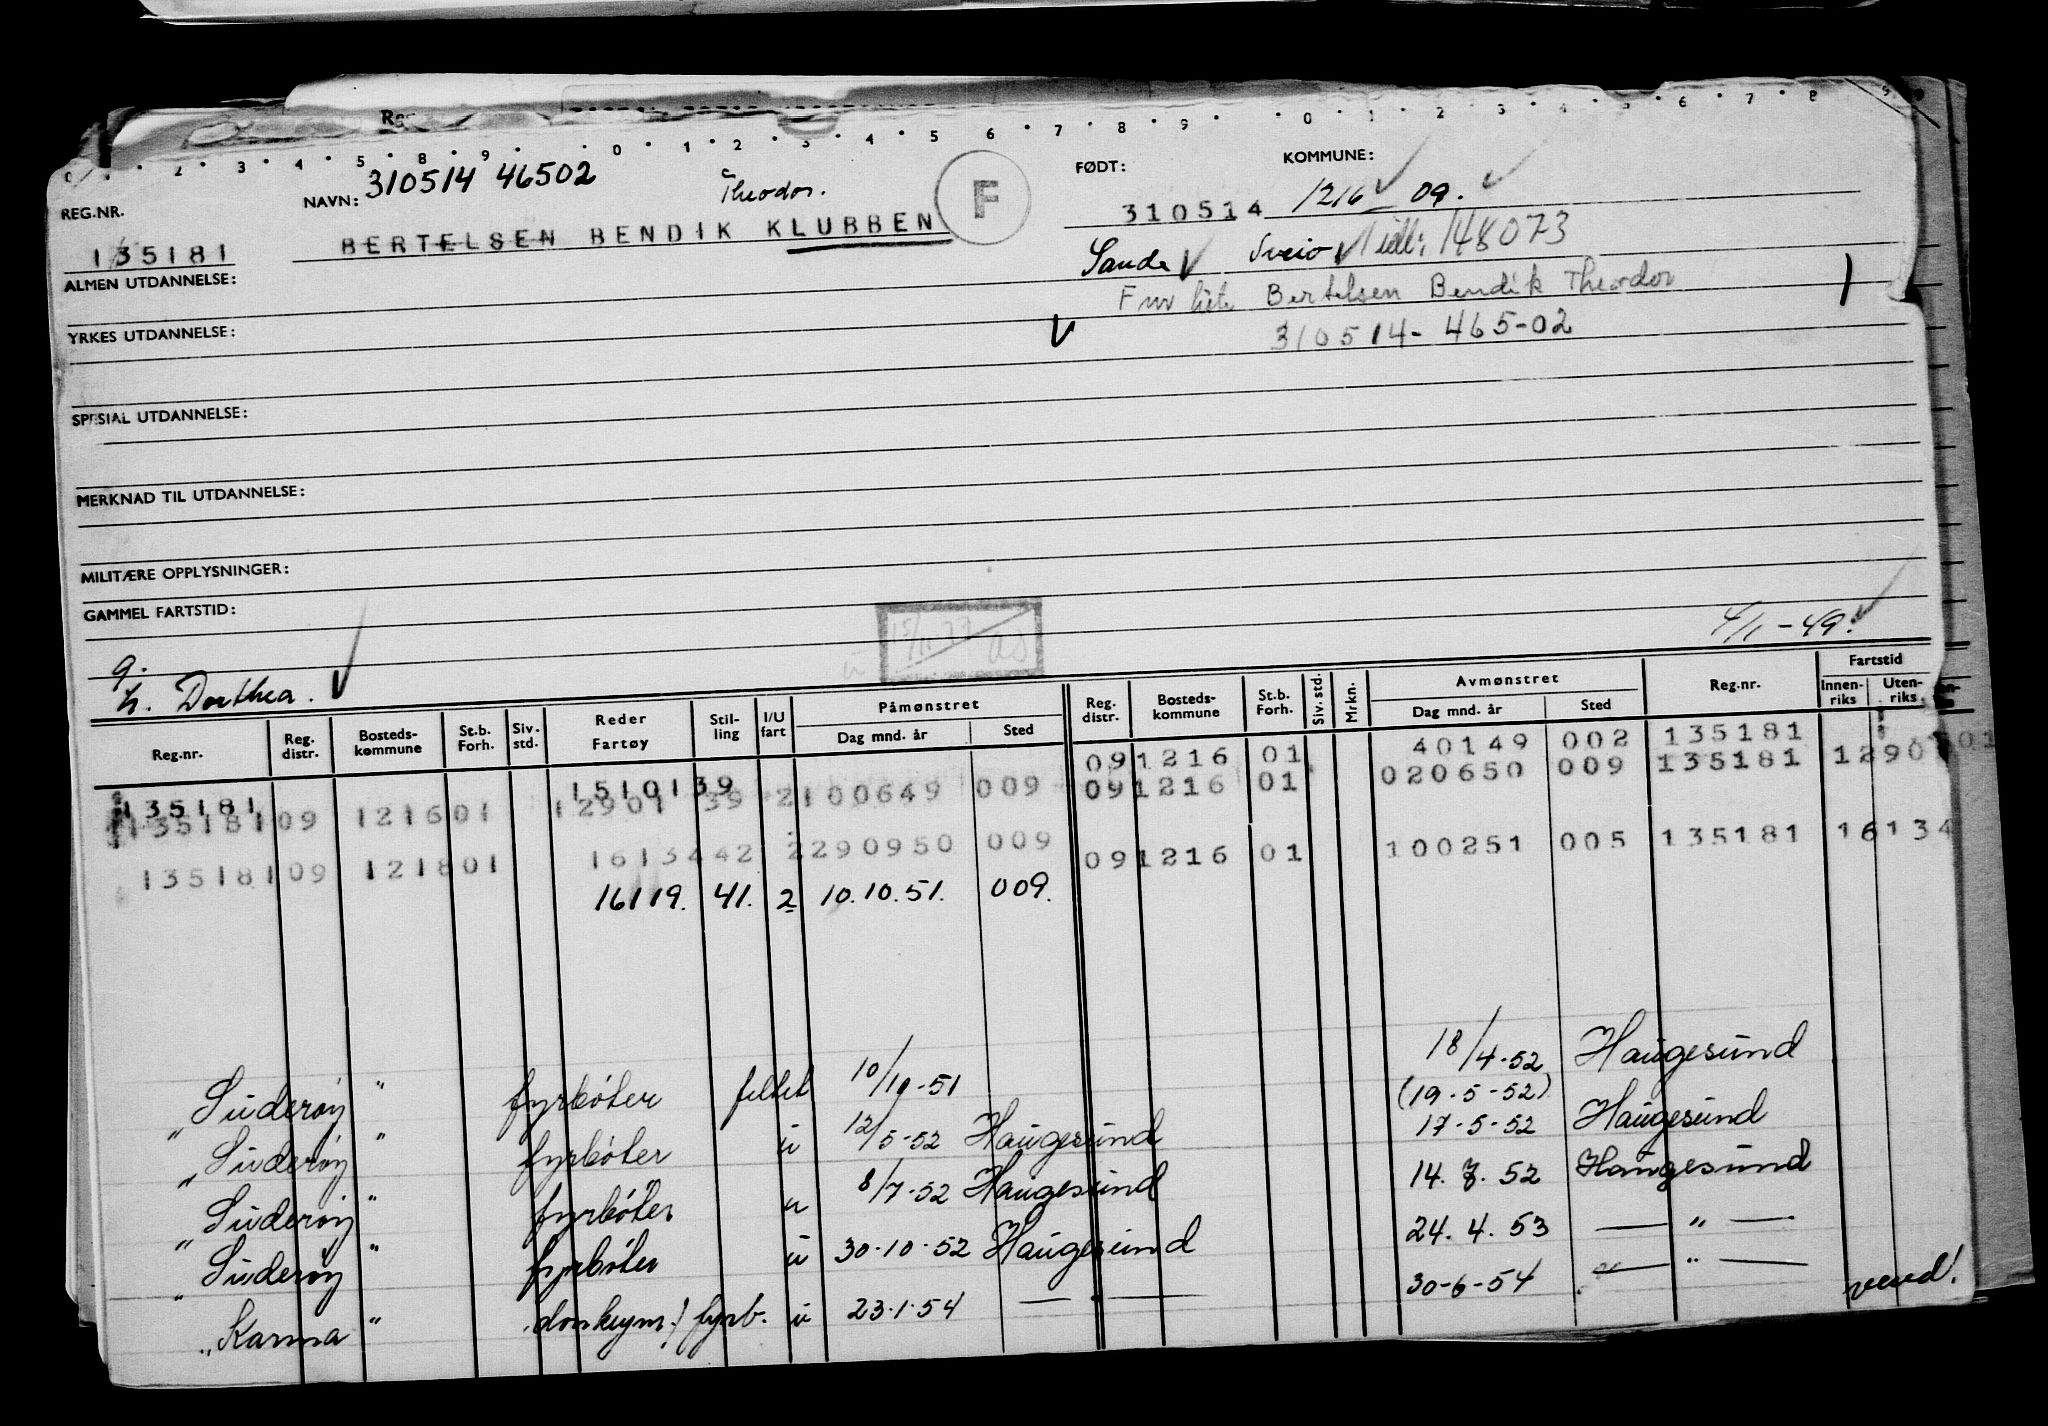 0 . 2 . 3 . 4 . 5 . 8 . 9 . . 0 . 1 . 2 . 3 . 4 . 5 . 6 . 7 . 8 . 9 . . 0 . 1 . 2 . 3 . 4 . 5 . 6 . 7 . 8 . 9
REG.NR. NAVN: 310514 46502 Theodor. F FØDT: KOMMUNE:
135181 BERTELSEN BENDIK KLUBBEN 310514 1216 09.
ALMEN UTDANNELSE: Sande Sveio 148073
Bertelsen Bendik Theodor
YRKES UTDANNELSE: 310514-465-02
SPESIAL UTDANNELSE:
MERKNAD TIL UTDANNELSE:
MILITÆRE OPPLYSNINGER:
GAMMEL FARTSTID:
4/1-49.
g. Dorthea.
Reg.nr. Reg. distr. Bosteds-kommune St.b. Forh. Siv. std. Reder Fartøy Stil-ling I/U fart Påmønstret Dag mnd. år Sted Reg. distr. Bosteds-kommune St.b. Forh. Siv. std. Mrkn. Avmønstret Dag mnd. år Sted Reg.nr. Fartstid Innen-riks Uten-riks
135181 1510139 09 1216 01 40149 002 135181
135181 09 1216 01 12901 39 2 100649 009 09 1216 01 020650 009 135181 1290
135181 09 1218 01 16134 42 2 290950 009 09 1216 01 100251 005 135181 16134
16119. 41. 2 10.10.51. 009.
„ Suderøy " fyrbøter feltet 10/10-51 18/4-52 Haugesund
(19-5-52)
„ Suderøy " fyrbøter u 12/5-52 Haugesund 17-5-52 Haugesund
„ Suderøy " fyrbøter u 8/7-52 Haugesund 14.7.52 Haugesund
„ Suderøy " fyrbøter u 30-10-52 Haugesund 24.4.53 — " —
„ Karma " donkeym./fyrb. u 23.1.54 — " — 30-6-54 — " — vend!